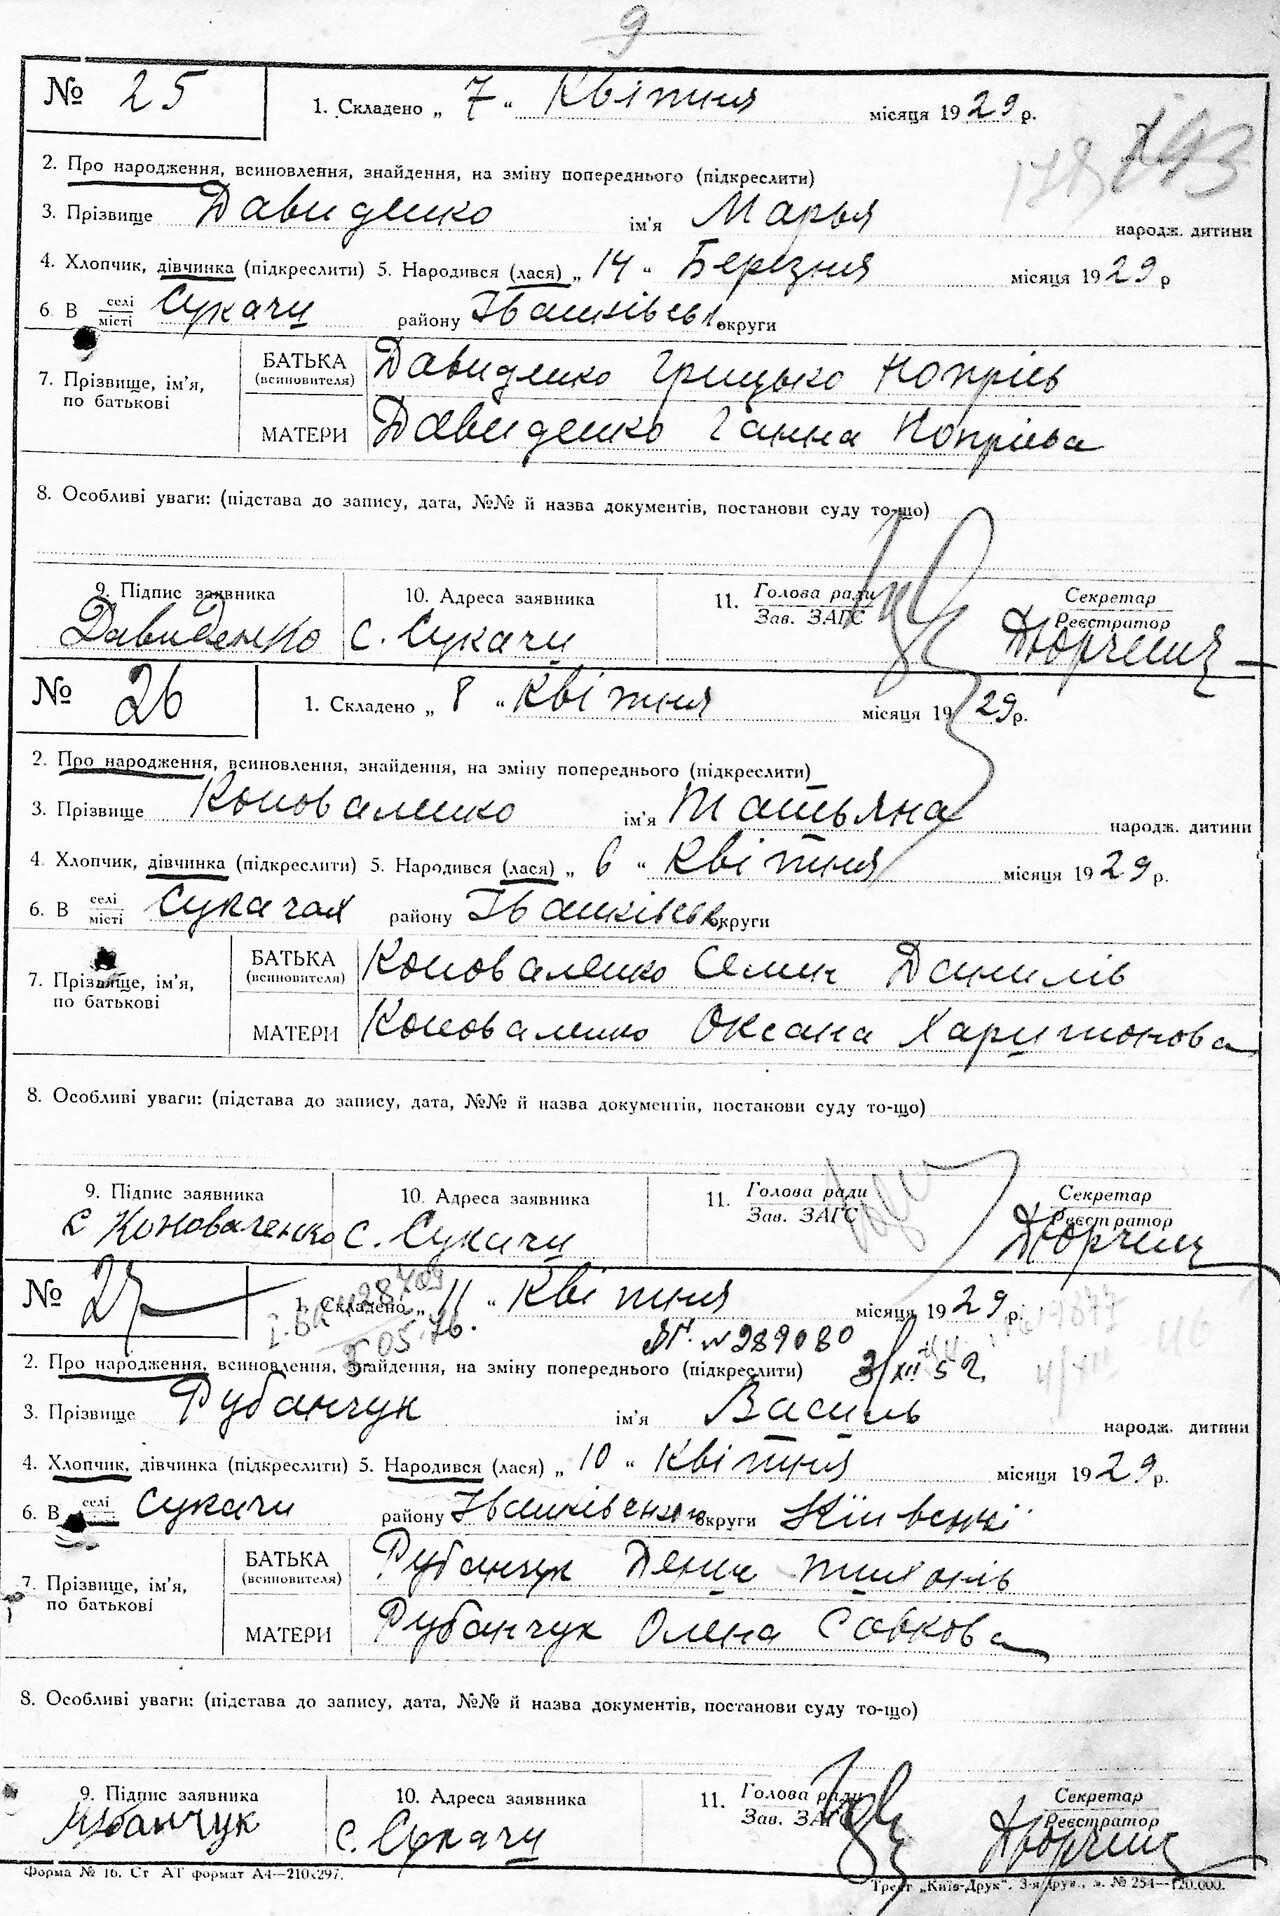 9
№ 25
1. Складено „ 7 “ Квітня місяця 1929 р.
178 193
2. Про народження, всиновлення, знайдення, на зміну попереднього (підкреслити)
3. Прізвище Давиденко ім'я Марья народж. дитини
4. Хлопчик, дівчинка (підкреслити) 5. Народився (лася) „ 14 “ Березня місяця 1929 р
6. В селі/місті Сукачи району Іванківськ округи
7. Прізвище, ім'я, по батькові
БАТЬКА (всиновителя) Давиденко Грицько
МАТЕРИ Давиденко Ганна
8. Особливі уваги: (підстава до запису, дата, №№ й назва документів, постанови суду то-що)
9. Підпис заявника 10. Адреса заявника 11. Голова ради / Зав. ЗАГС Секретар / Реєстратор
Давиденко с. Сукачи
№ 26
1. Складено „ 8 “ Квітня місяця 1929 р.
2. Про народження, всиновлення, знайдення, на зміну попереднього (підкреслити)
3. Прізвище Коноваленко ім'я Татьяна народж. дитини
4. Хлопчик, дівчинка (підкреслити) 5. Народився (лася) „ 6 “ Квітня місяця 1929 р.
6. В селі/місті Сукачах району Іванківськ округи
7. Прізвище, ім'я, по батькові
БАТЬКА (всиновителя) Коноваленко Семин Данилів
МАТЕРИ Коноваленко Оксана Харитонова
8. Особливі уваги: (підстава до запису, дата, №№ й назва документів, постанови суду то-що)
9. Підпис заявника 10. Адреса заявника 11. Голова ради / Зав. ЗАГС Секретар / Реєстратор
С Коноваленко с. Сукачи
№ 27
1. Складено „ 11 “ Квітня місяця 1929 р.
№ 289080
2. Про народження, всиновлення, знайдення, на зміну попереднього (підкреслити) 3/XII 52.
3. Прізвище Рубанчук ім'я Василь народж. дитини
4. Хлопчик, дівчинка (підкреслити) 5. Народився (лася) „ 10 “ Квітня місяця 1929 р.
6. В селі/місті Сукачи району округи Київськ
7. Прізвище, ім'я, по батькові
БАТЬКА (всиновителя) Рубанчук Денис
МАТЕРИ Рубанчук Олена Савкова
8. Особливі уваги: (підстава до запису, дата, №№ й назва документів, постанови суду то-що)
9. Підпис заявника 10. Адреса заявника 11. Голова ради / Зав. ЗАГС Секретар / Реєстратор
Рубанчук с. Сукачи
Форма № 16. Ст АТ формат А4—210х297.
Трест „Київ-Друк“. 3-я друк., з. № 254—120.000.